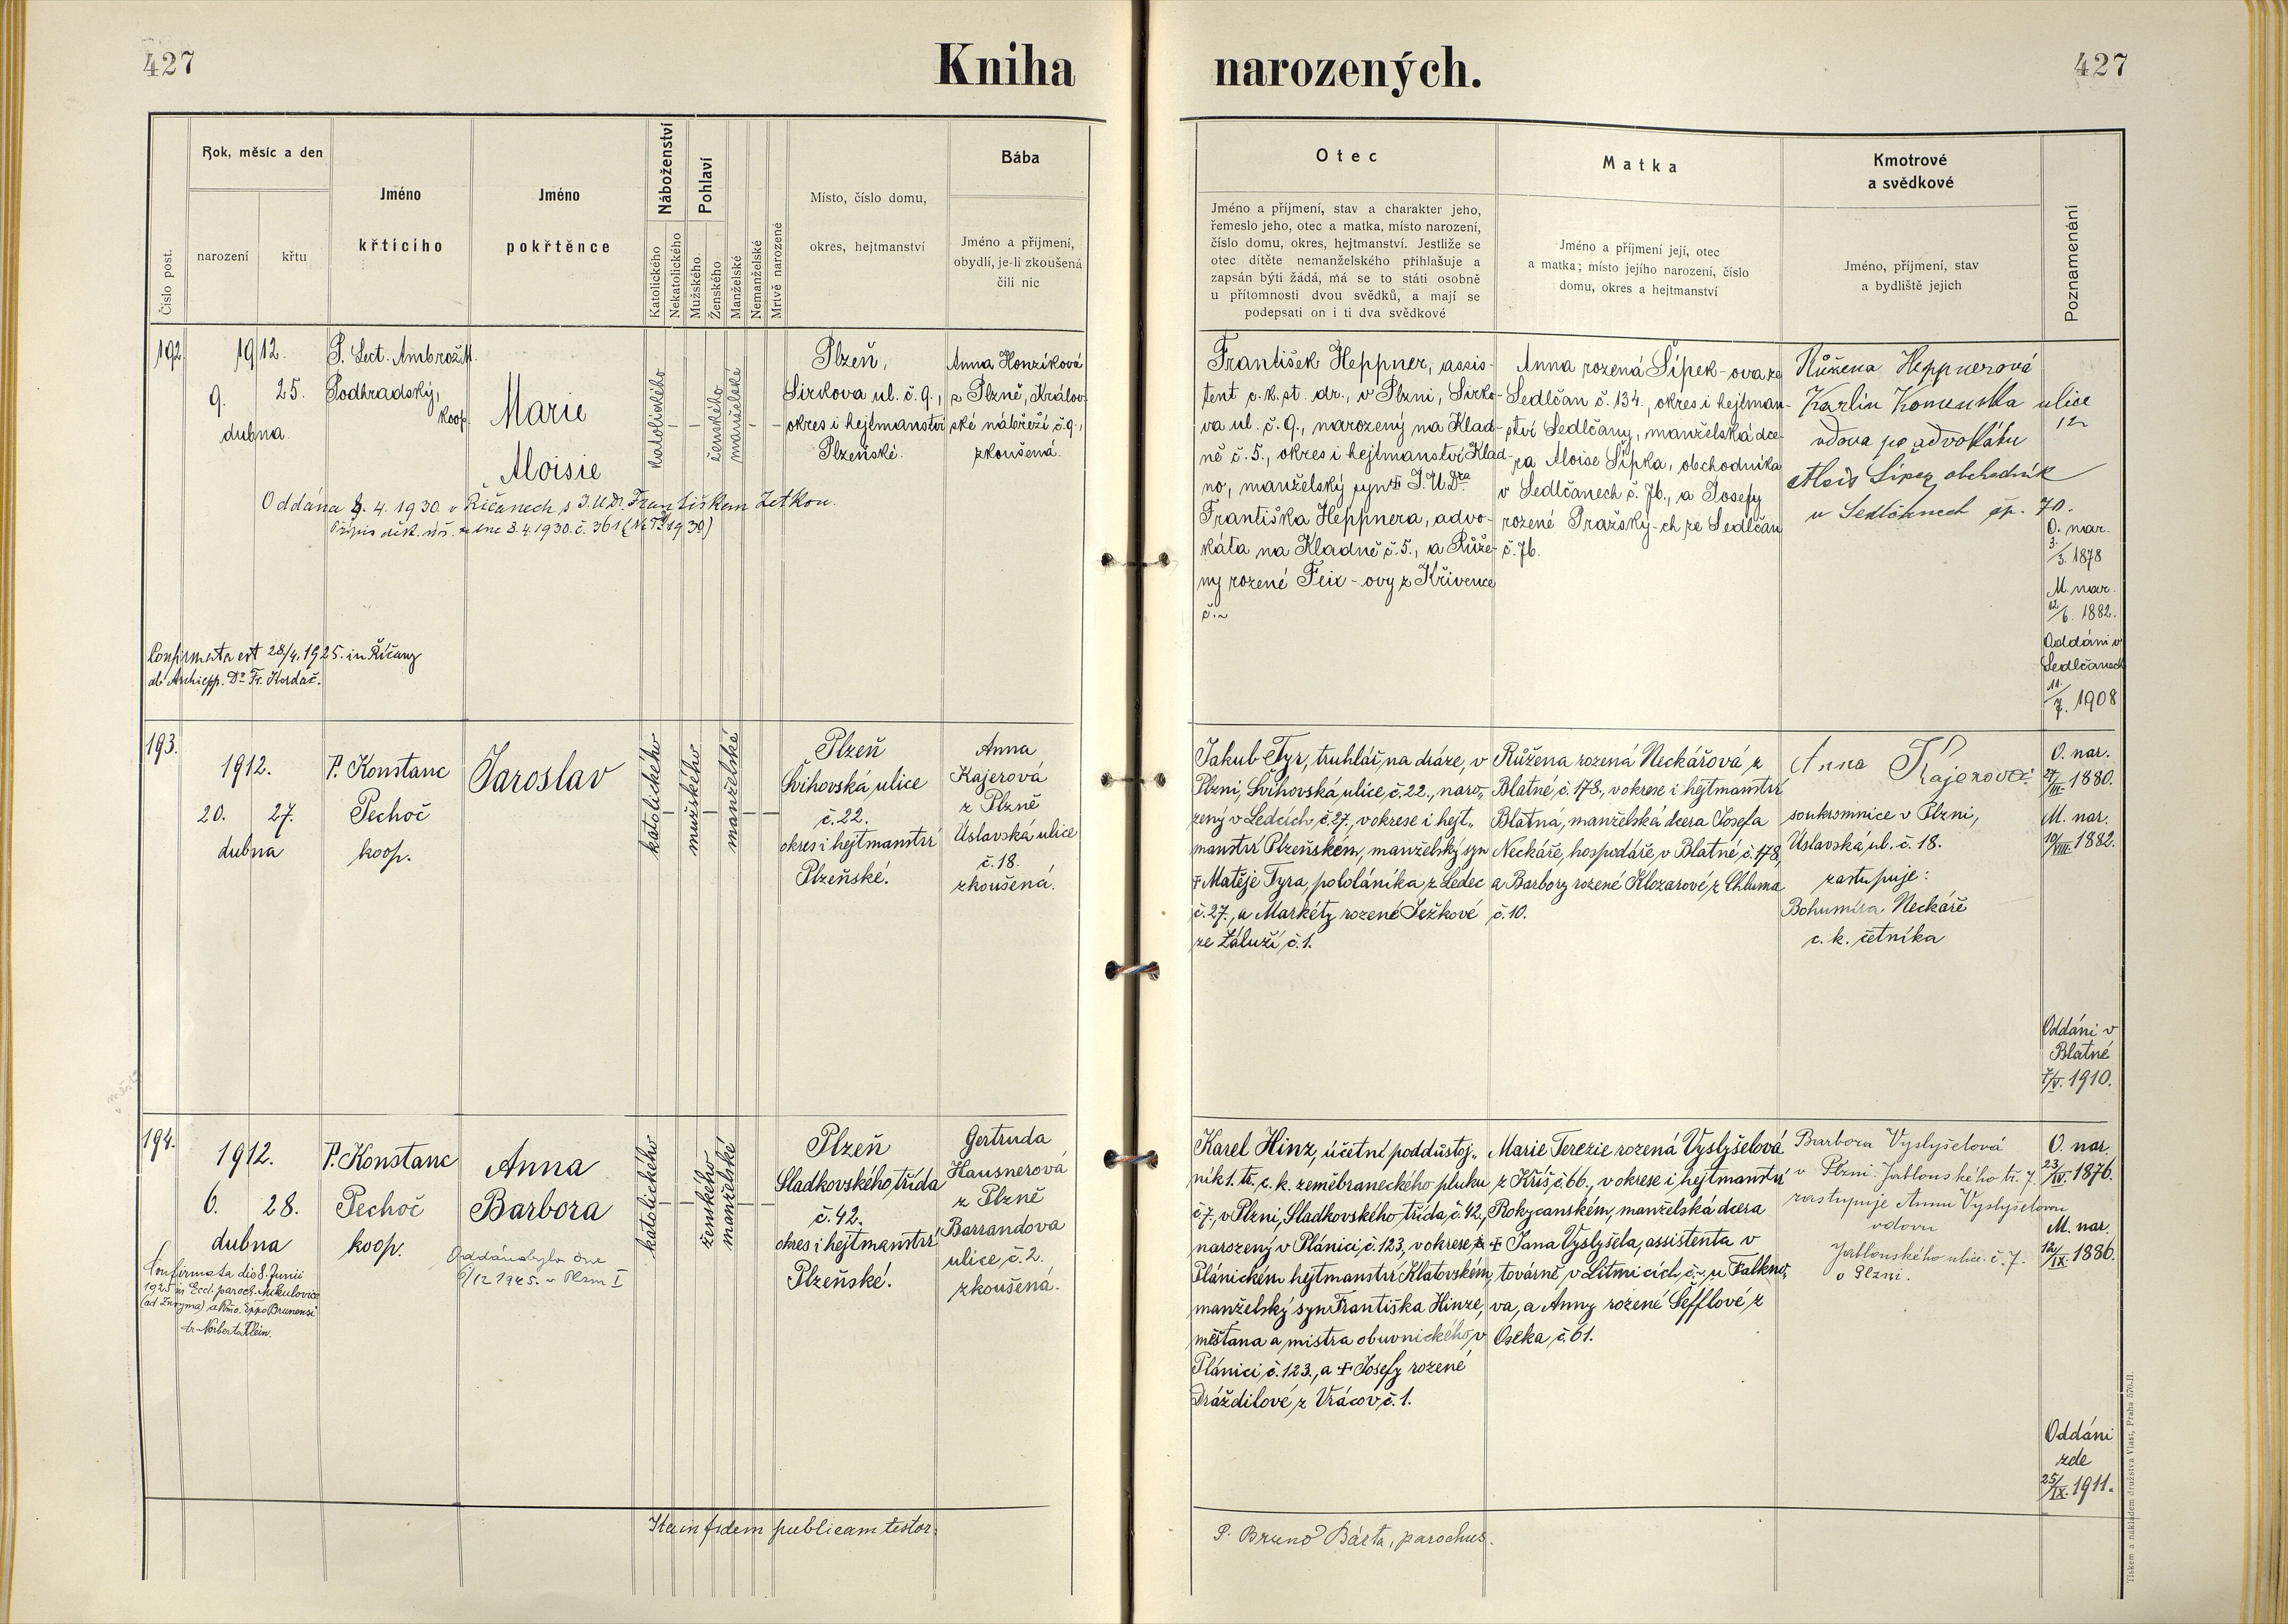 427
Kniha
narozených.
427
Číslo post.
Rok, měsíc a den
narození
křtu
Jméno
křtícího
Jméno
pokřtěnce
Náboženství
Katolického
Nekatolického
Pohlaví
Mužského
Ženského
Manželské
Nemanželské
Mrtvě narozené
Místo, číslo domu,
okres, hejtmanství
Bába
Jméno a příjmení,
obydlí, je-li zkoušená
čili nic
Otec
Jméno a příjmení, stav a charakter jeho,
řemeslo jeho, otec a matka, místo narození,
číslo domu, okres, hejtmanství. Jestliže se
otec dítěte nemanželského přihlašuje a
zapsán býti žádá, má se to státi osobně
u přítomnosti dvou svědků, a mají se
podepsati on i ti dva svědkové
Matka
Jméno a příjmení její, otec
a matka; místo jejího narození, číslo
domu, okres a hejtmanství
Kmotrové
a svědkové
Jméno, příjmení, stav
a bydliště jejich
Poznamenání
192.
1912.
9. 25.
dubna.
P. Lect. Ambrož M.
Podhradský,
koop.
Marie
Aloisie
katolického
ženského
manželské
Plzeň,
Sirkova ul. č. 9.,
okres i hejtmanství
Plzeňské.
Anna Honzíková
z Plzně, Králov-
ské nábřeží č. 9.,
zkoušená.
Oddána 8. 4. 1930. v Říčanech s J.U.Dr. Františkem Zetkou.
Přípis děk. úř. ze dne 8. 4. 1930. č. 361
Confirmata est 28/4. 1925. in Říčany
ab Archiepp. Dr. Fr. Kordač.
František Heppner, assis-
tent c. k. st. dr., v Plzni, Sirko-
va ul. č. 9., narozený na Klad-
ně č. 5., okres i hejtmanství Klad-
no, manželský syn ‡ J. U. Dra
Františka Heppnera, advo-
káta na Kladně č. 5., a Růže-
ny rozené Feix-ovy z Křivence
č. ~
Anna rozená Šípek-ova ze
Sedlčan č. 134., okres i hejtman-
ství Sedlčany, manželská dce-
ra Aloise Šípka, obchodníka
v Sedlčanech č. 76., a Josefy
rozené Pražský-ch ze Sedlčan
č. 76.
Růžena Heppnerová
Karlín Komenska ulice
12
vdova po advokátu
Alois Šípek obchodník
v Sedlčanech čp. 70.
O. nar.
3./3. 1878
M. nar.
12./6. 1882.
Oddáni v
Sedlčanech
11./7. 1908
193.
1912.
20. 27.
dubna
P. Konstanc
Pechoč
koop.
Jaroslav
katolického
mužského
manželské
Plzeň
Švihovská ulice
č. 22.
okres i hejtmanství
Plzeňské.
Anna
Kajerová
z Plzně
Úslavská ulice
č. 18.
zkoušená.
Jakub Tyr, truhlář na dráze, v
Plzni, Švihovská ulice, č. 22., naro„
zený v Ledcích, č. 27., v okrese i hejt„
manství Plzeňském, manželský syn
‡ Matěje Tyra, pololáníka, z Ledec
č. 27., a Markéty rozené Ježkové
ze Záluží č. 1.
Růžena rozená Neckářová z
Blatné, č. 178., v okrese i hejtmanství
Blatná, manželská dcera Josefa
Neckáře, hospodáře v Blatné, č. 178,
a Barbory rozené Klozarové, z Chluma
č. 10.
Anna Kajerová
soukromnice v Plzni,
Úslavská, ul. č. 18.
zastupuje:
Bohumíra Neckáře
c. k. četníka
O. nar.
27/VII. 1880.
M. nar.
19/VIII. 1882.
Oddáni v
Blatné
7/V. 1910.
194.
1912.
6. 28.
dubna
P. Konstanc
Pechoč
koop.
Anna
Barbora
Oddána byla dne
6/12 1945. v Plzni I
Confirmata die 8. Junii
1925 in Eccl. paroch. Mikulovice
(ad Znoyma) a Rmo. Eppo Brunensi
dr. Norberto Klein.
katolického
ženského
manželské
Plzeň
Sladkovského, třída
č. 42.
okres i hejtmanství
Plzeňské.
Gertruda
Hausnerová
z Plzně
Barrandova
ulice č. 2.
zkoušená.
Karel Hinz, účetní poddůstoj„
ník 1. tř. c. k. zeměbraneckého pluku
č. 7., v Plzni, Sladkovského, třída, č. 42.,
narozený v Plánici, č. 123, v okrese
Plánickém hejtmanství Klatovském,
manželský syn Františka Hinze,
měšťana a mistra obuvnického, v
Plánici, č. 123., a ‡ Josefy rozené
Dráždilové, z Vrácov č. 1.
Marie Terezie rozená Vyslyšelová
z Kříš, č. 66., v okrese i hejtmanství
Rokycanském, manželská dcera
‡ Jana Vyslyšela, assistenta v
továrně v Litmicích, č. ~, u Falkno„
va, a Anny rozené Šefflové, z
Oseka, č. 61.
Barbora Vyslyšelová
v Plzni Jablonského tř. 7.
zastupuje Annu Vyslyšelovou
vdovu
Jablonského ulice č. 7.
v Plzni.
O. nar.
23/IV. 1876.
M. nar.
12/IX. 1886.
Oddáni
zde
25/IX. 1911.
Ita in fidem publicam testor:
P. Bruno Bárta, parochus.
Tiskem a nákladem družstva Vlast, Praha 570-II.